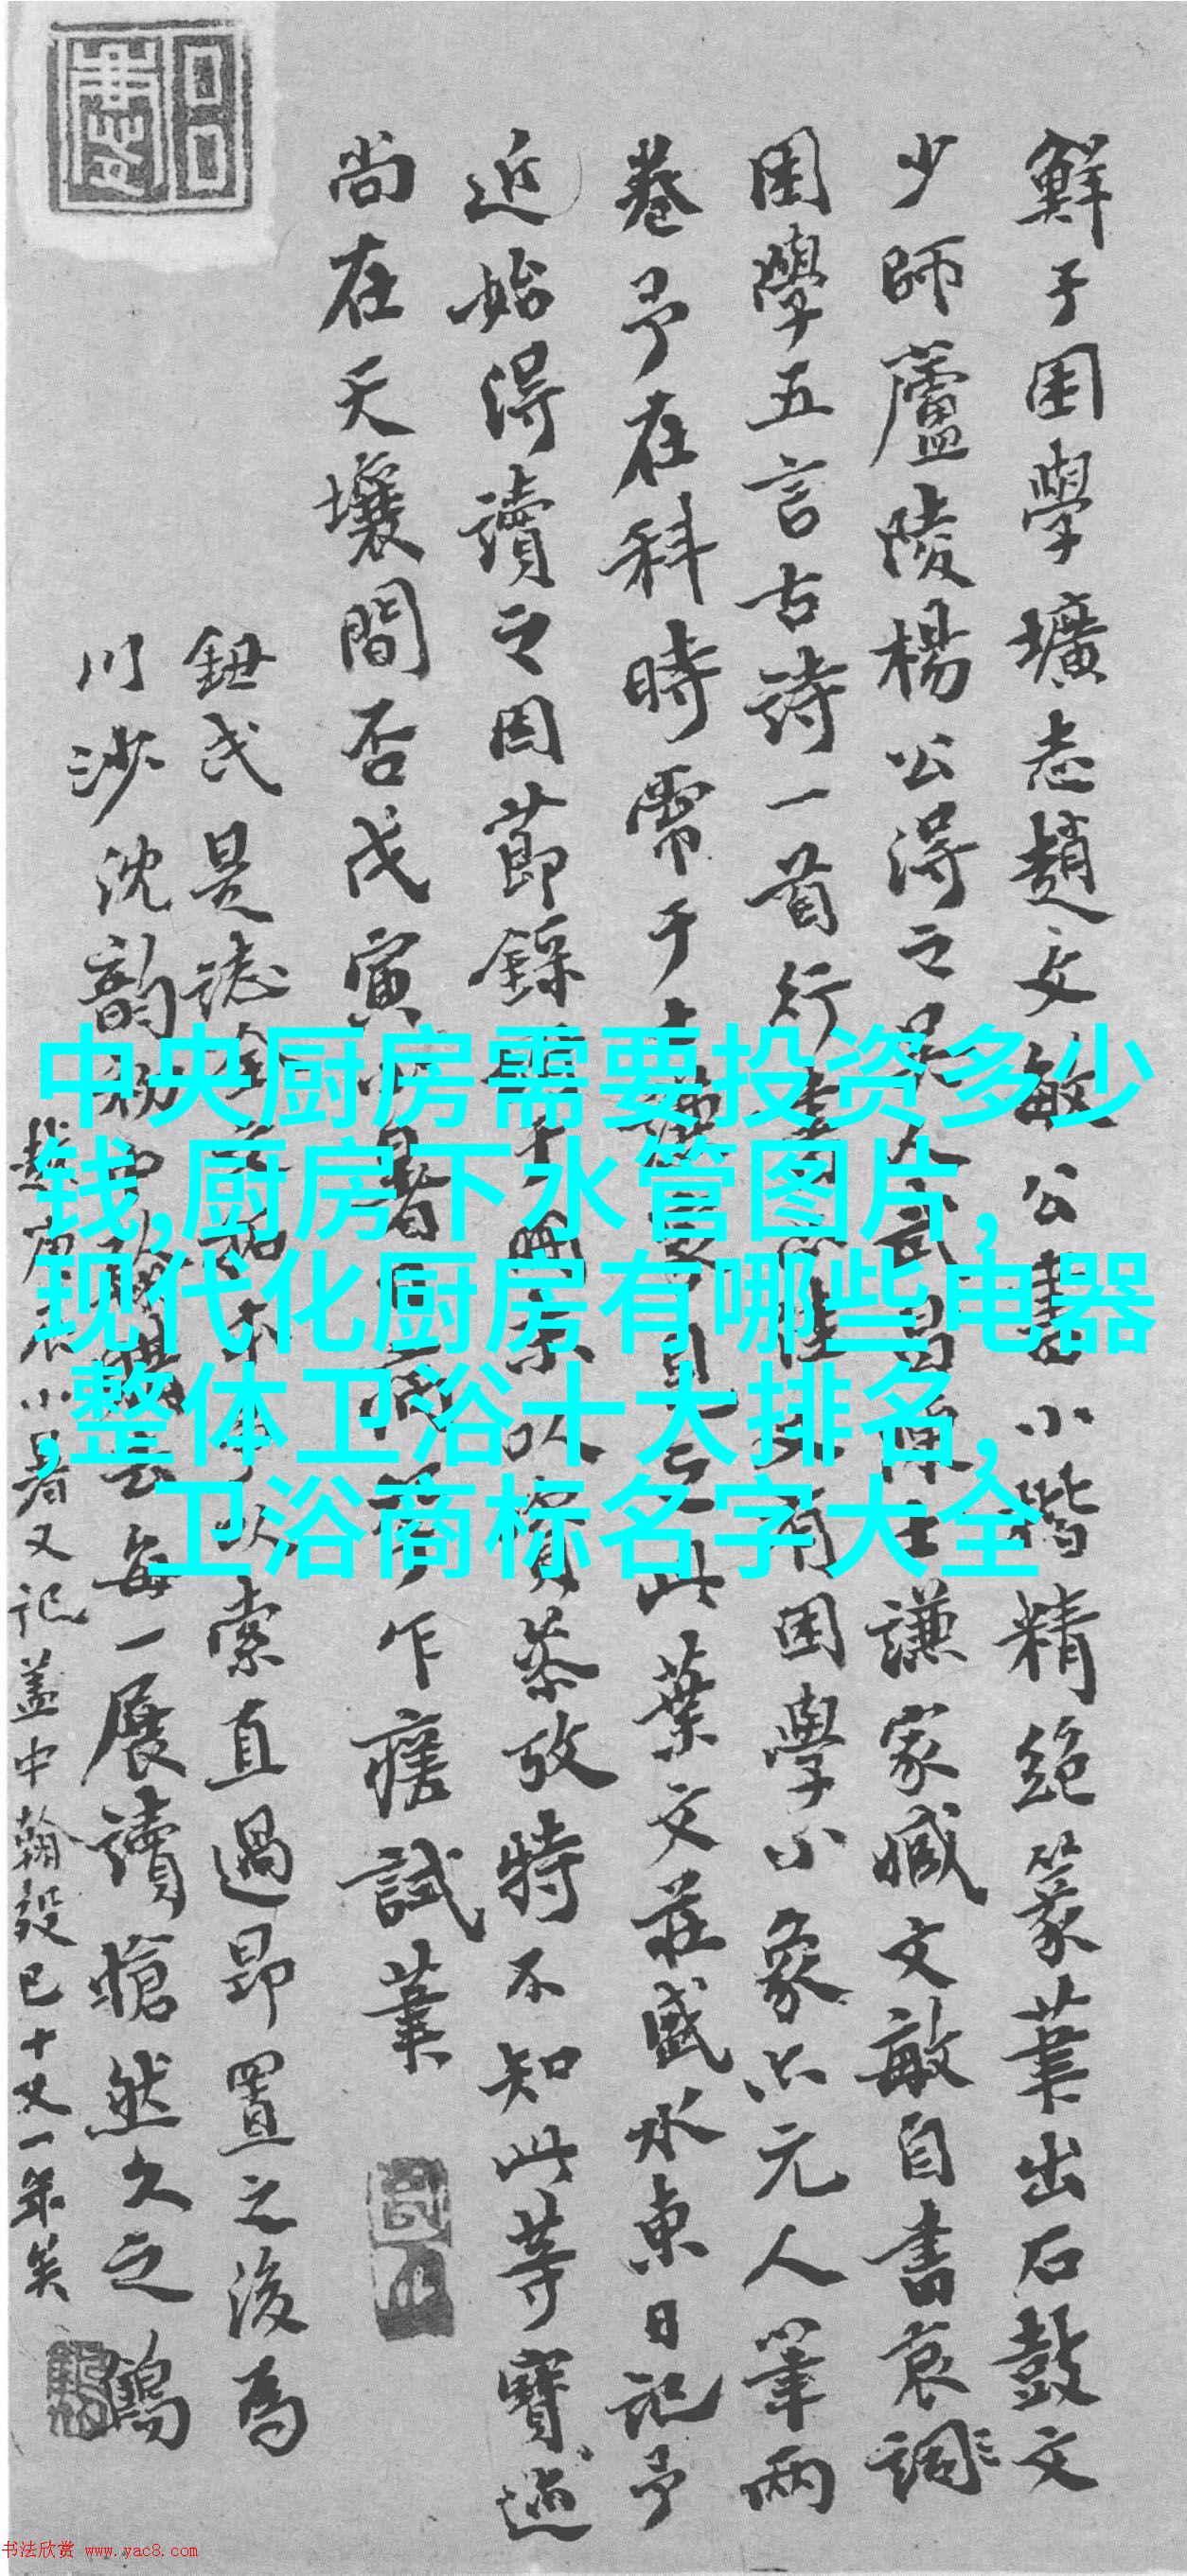 鮮于困學壙志趙文敏公書小楷精絕篆筆出石鼓文
少師蘆陵楊公得之吳人武昌陳士謙家臧文敏自書哀調
困學五言古詩一首行書
有困學小象六元人筆兩
卷予在科時需于
此葉文莊盛水東日記予
近始得讀之因節錄
以資參攷特不知此等寶迹
尚在天壤間否戊寅
暑
乍痊試筆
鈕氏是誌
索直過昂置之後為
川沙沈韵初
每一展讀愴然久之鶴
庚辰小暑又記蓋中翰歿已十又一年矣
中央厨房需要投资多少
钱,厨房下水管图片,
现代化厨房有哪些电器
,整体卫浴十大排名,
卫浴商标名字大全
书法欣赏 www.yac8.com